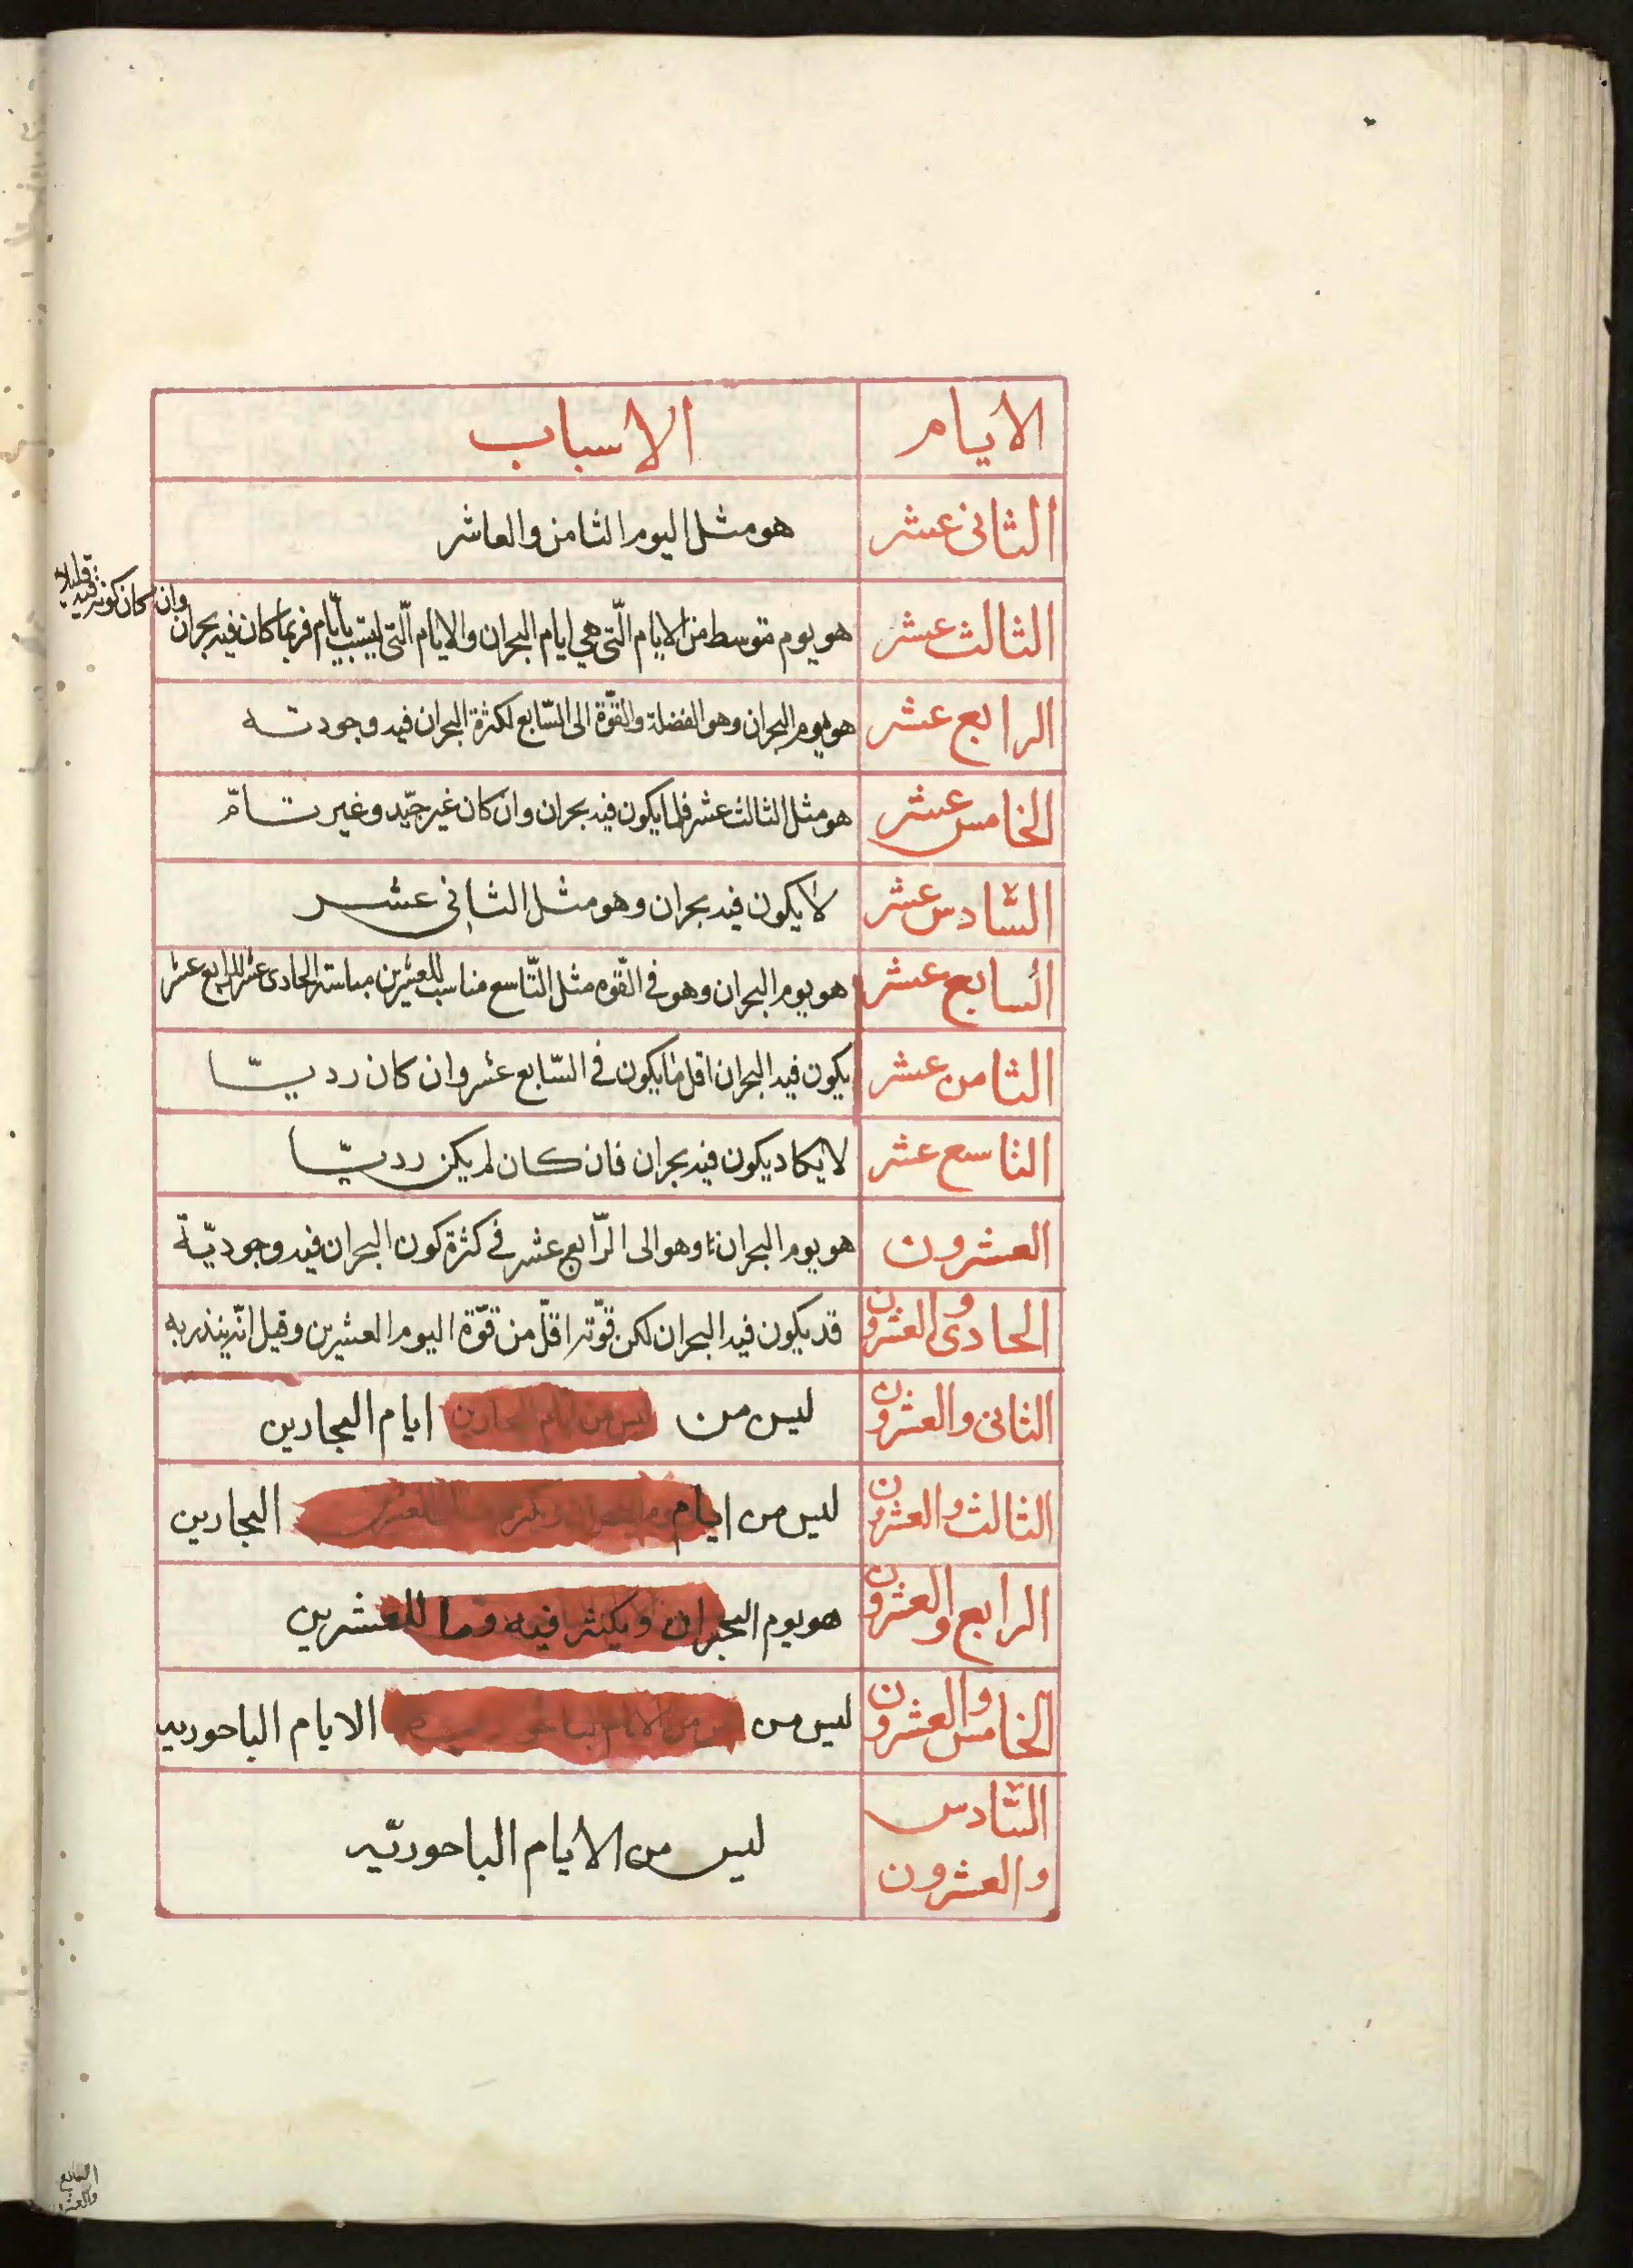 الايام الاسباب
الثانى عشر هو مثل اليوم الثامن والعاشر
وان كان كونه فيه قليلا
الثالث عشر هو يوم متوسط من الايام الّتى هي ايام البحران والايام الّتى ليست بايّام فربما كان فيه بحران
الرابع عشر هو يوم البحران وهو الفضلة والقوّة الى السّابع لكثرة البحران فيه وجودته
الخامس عشر هو مثل الثالث عشر فلما يكون فيه بحران وان كان غير جيّد وغير تامّ
السّادس عشر لا يكون فيه بحران وهو مثل الثانى عشر
السابع عشر هو يوم البحران وهو فى القّوه مثل التّاسع مناسب للعشرين الحادى عشر للرابع عشر
الثامن عشر يكون فيه البحران اقل مما يكون فى السّابع عشر وان كان رديّا
التاسع عشر لا يكاد يكون فيه بحران فان كان لم يكن رديّا
العشرون هو يوم البحران وهو الى الرّابع عشر فى كثرة كون البحران فيه وجوديّة
الحادى والعشرون قد يكون فيه البحران لكن قوّته اقلّ من قوّة اليوم العشرين وقيل انّه ينذر به
الثانى والعشرون ليس من ليس من ايام البحارين ايام البحارين
الثالث والعشرون ليس من ايام البحارين
الرابع والعشرون هو يوم البحران ويكثر فيه وما للعشرين
الخامس والعشرون ليس من الايام الباحوريه
السّادس
والعشرون ليس من الايام الباحوريّه
السابع
والعشرون